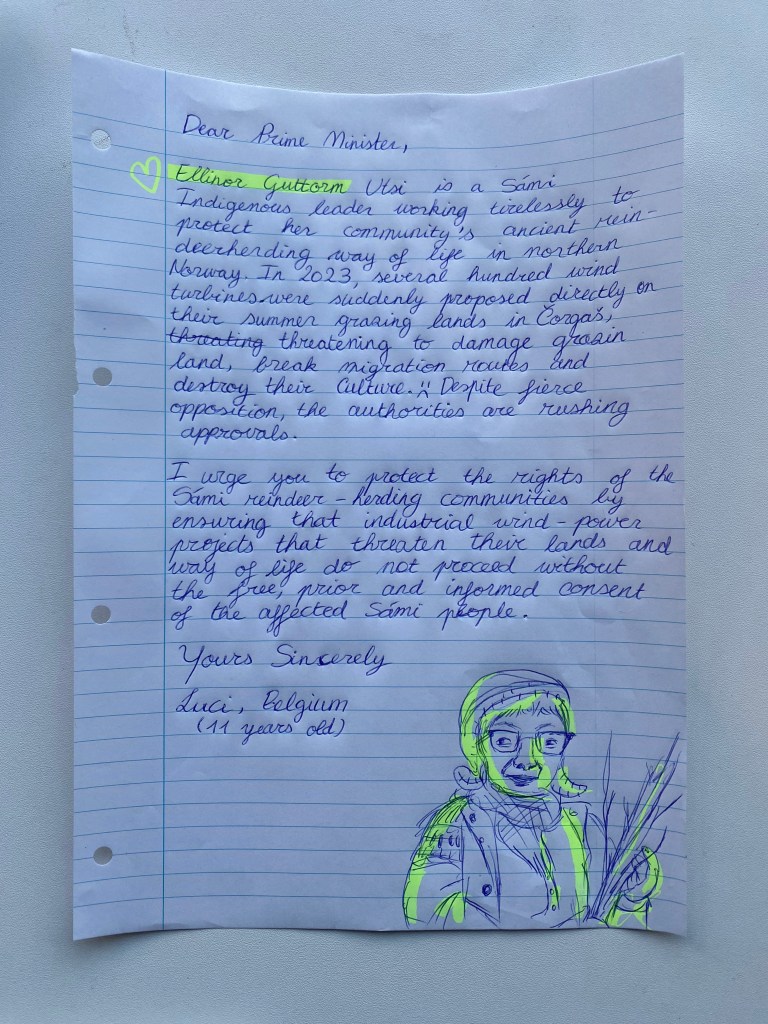 Dear Prime Minister,
Ellinor Guttorm Utsi is a Sámi
Indigenous leader working tirelessly to
protect her community's ancient rein-
deerherding way of life in northern
Norway. In 2023, several hundred wind
turbines were suddenly proposed directly on
their summer grazing lands in Čorgaš,
threating threatening to damage grazin
land, break migration routes and
destroy their culture. :( Despite fierce
opposition, the authorities are rushing
approvals.
I urge you to protect the rights of the
Sámi reindeer-herding communities by
ensuring that industrial wind-power
projects that threaten their lands and
way of life do not proceed without
the free, prior and informed consent
of the affected Sámi people.
Yours Sincerely
Luci, Belgium
(11 years old)